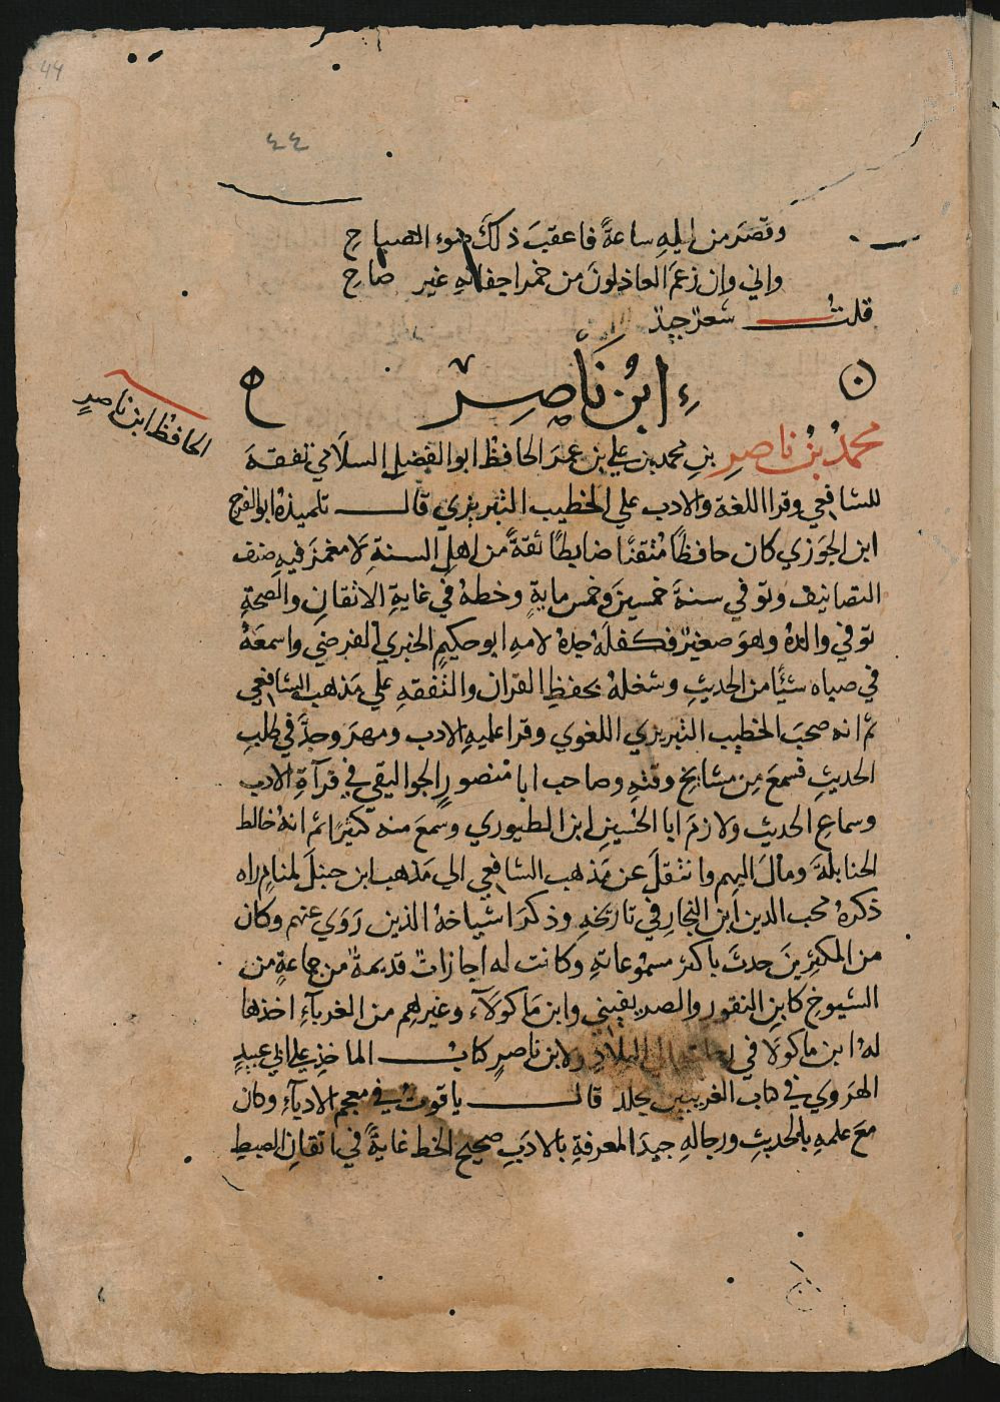 44
٤٤
وقصَرَ من ليلهِ ساعةً فاعقبَ ذلكَ ضوء الصباحِ
واني وان زعمَ العاذلونَ من خمر اجفانهِ غير صاحِ
قلتُ شعرٌ جيدٌ
ابنُ نَاصِرٍ
الحافظُ ابن ناصرٍ
محمدُ بنُ ناصرِ بنِ محمد بن علي بن عمرَ الحافظُ ابو الفضلِ السلاَمي تفقهَ
للشافعي وقرا اللغة والادب علي الخطيب التبريزي قال تلميذهُ ابو الفرج
ابن الجَوزي كان حافظًا مُتقنًا ضابطًا ثقةً من اهلِ السنةِ لا مغمزَ فيهِ صنف
التصانيف وتوفي سنةَ خمسينَ وخمس مايةٍ وخطهُ في غايةِ الاتقانِ والصحةِ
توفي والدهُ وهوَ صغيرٌ فكفلَهُ جدهُ لامهِ ابو حكيمٍ الخبري الفرضي واسمعَهُ
في صباه شيًا من الحديثِ وشغلهُ بحفظِ القران والتفقهِ علي مَذهب الشافعي
ثم انه صحبَ الخطيب التبريزي اللغوي وقرا عليهِ الادب ومهرَ وجدَّ في طلبِ
الحديثِ فسمعَ مِن مشايخِ وقتهِ وصاحب ابا منصورٍ الجواليقي في قرآةِ الادب
وسماعِ الحديث ولازمَ ابا الحُسينِ ابن الطيوري وسمعَ منه كثيرًا ثم انهُ خالط
الحنابلةَ ومالَ اليهم وانتقلَ عن مَذهب الشافعي الي مَذهب ابن حنبلَ لمنامٍ راه
ذكرهُ محب الدين ابن النجار في تاريخهِ وذكرَ اشياخهُ الذين رَوَي عنهم وكان
من المكثِرينَ حدثَ باكثر مسمُوعاتهِ وكانت له اجازاتٌ قديمةٌ من جماعةٍ من
الشيوخِ كابنِ النقور والصريفيني وابن مَاكولاَء وغيرهم من الغرباءِ اخذها
لهُ ابن ماكولا في الي البلادِ ولابن ناصرٍ كتابُ الماخذِ علي ابي عبيدٍ
الهرَوي في كتاب الغريبين مجلد قال ياقوتٌ في معجم الادبآءِ وكان
معَ علمهِ بالحديثِ ورجالهِ جيدَ المعرفةِ بالادَبِ صحيح الخط غايةً في اتقانِ الضبطِ